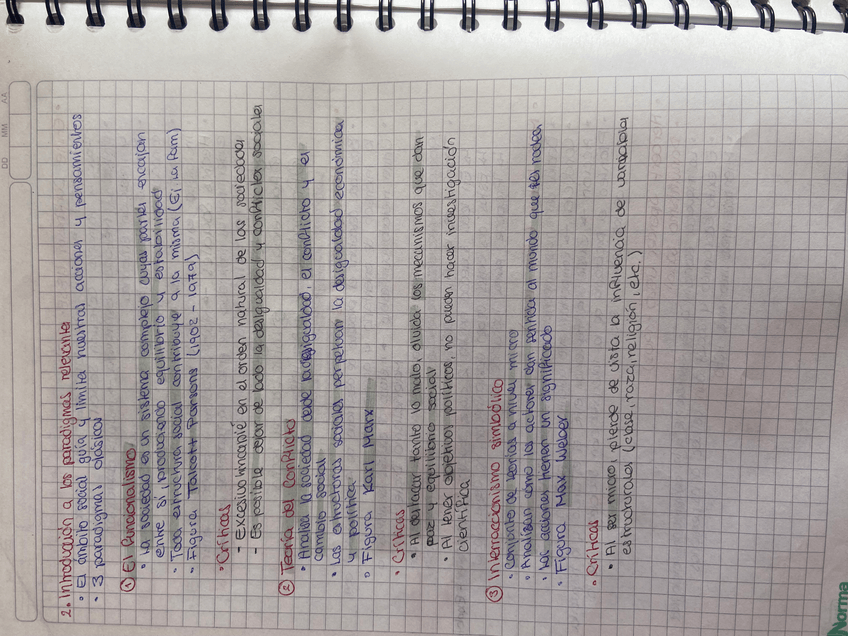 DD MM AA
2. Introducción a los paradigmas relevante
• El ámbito social guía y limita nuestras acciones y pensamientos
• 3 paradigmas clásicos
① El Funcionalismo
• La sociedad es un sistema complejo cuyas partes encajan
entre sí produciendo equilibrio y estabilidad
• Toda estructura social contribuye a la misma (Ej la fam)
• Figura Talcott Parsons (1902 - 1979)
• Críticas
- Excesivo hincapié en el orden natural de las sociedades
- Es posible dejar de lado la desigualdad y conflictos sociales
② Teoría del Conflicto
• Analiza la sociedad desde la desigualdad, el conflicto y el
cambio social
• Las estructuras sociales perpetúan la desigualdad económica
y política
• Figura Karl Marx
• Críticas
• Al destacar tanto lo malo, olvida los mecanismos que dan
paz y equilibrio social
• Al tener objetivos políticos, no pueden hacer investigación
científica
③ Interaccionismo simbólico
• Conjunto de teorías a nivel micro
• Analizan como los actores dan sentido al mundo que les rodea
• Las acciones tienen un significado
• Figura Max Weber
• Críticas
• Al ser micro pierde de vista la influencia de variables
estructurales (clase, raza, religión, etc.)
Norma